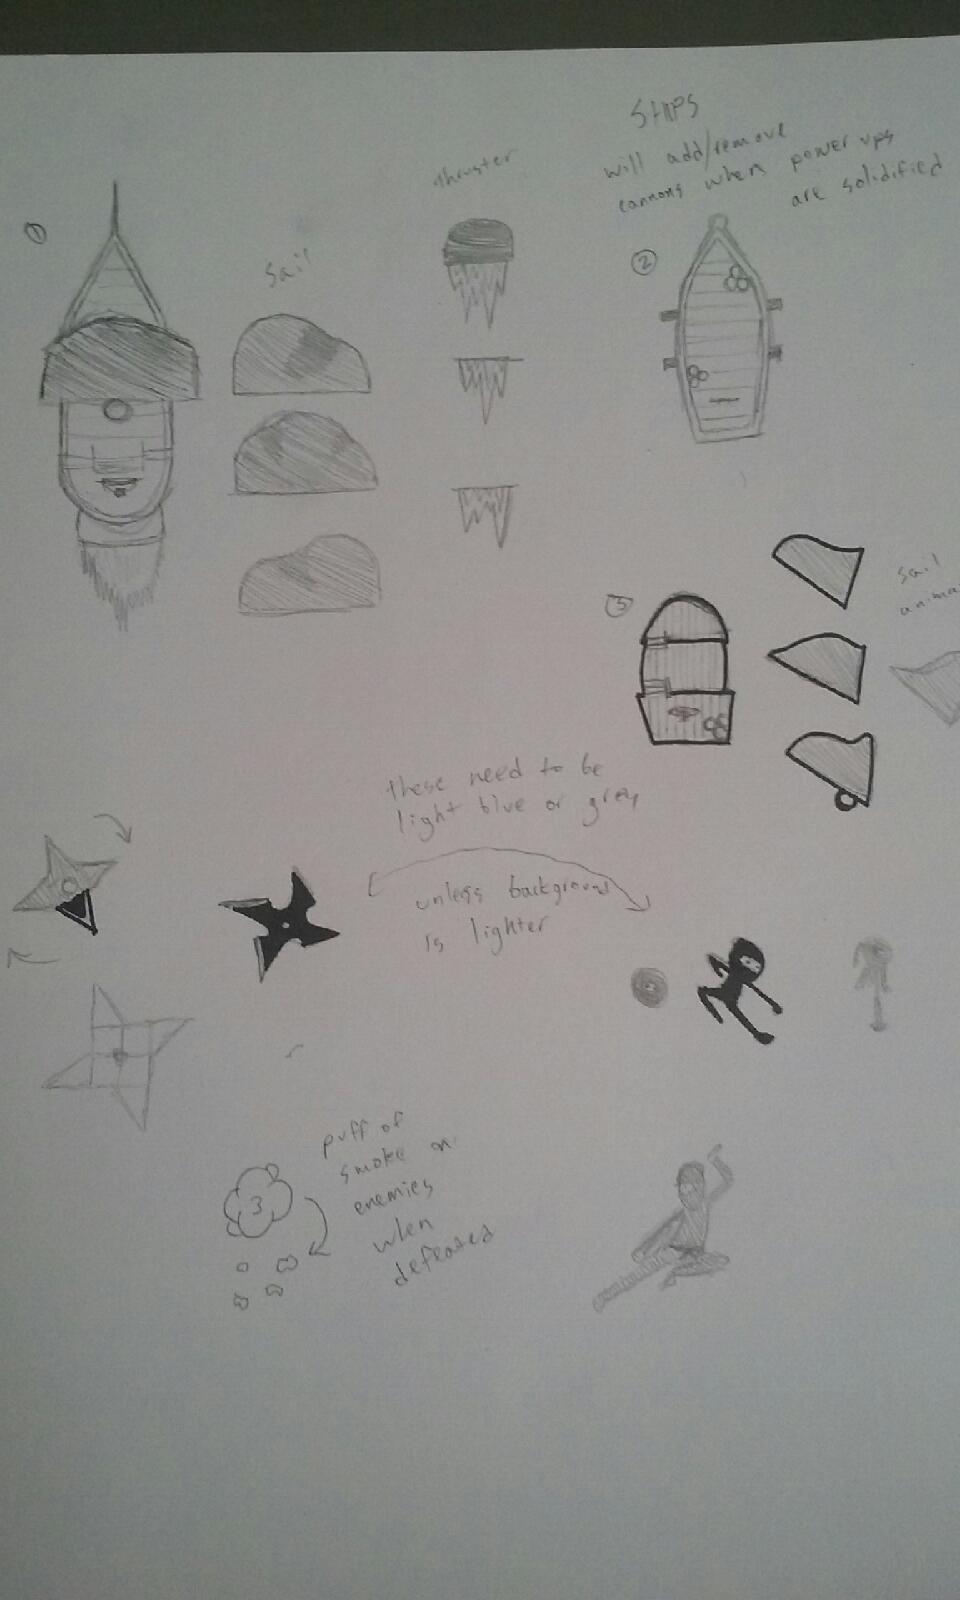 SHIPS
will add/remove
cannons when power ups
are solidified
Thruster
①
Sail
②
③
Sail
anima
these need to be
light blue or grey
unless background
is lighter
puff of
smoke on
enemies
when
defeated
3